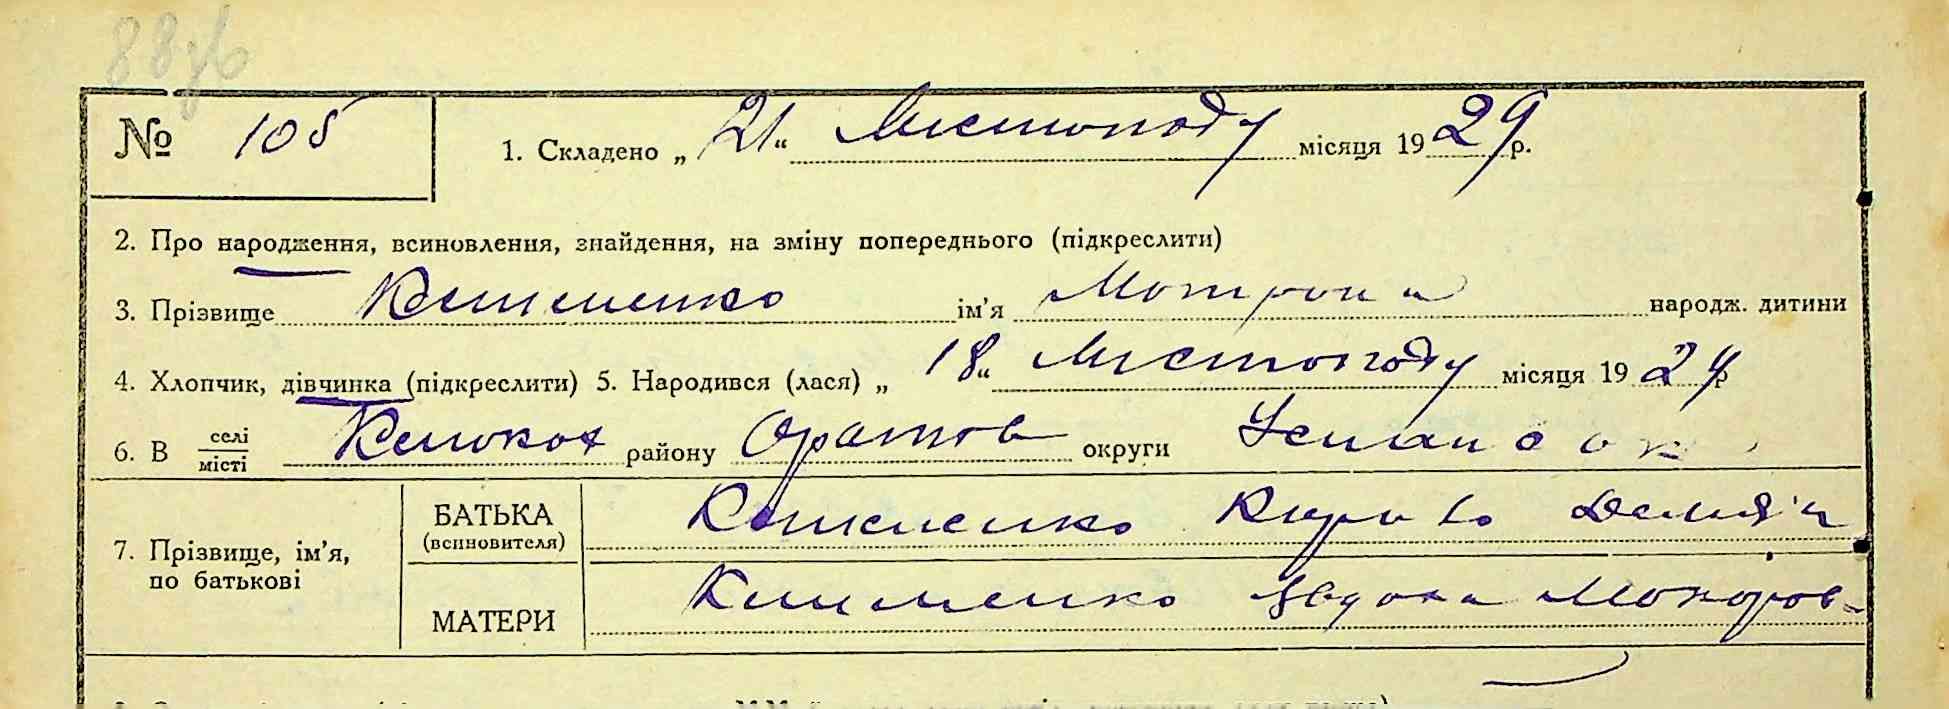 № 105
1. Складено „21“ Листопаду місяця 1929 р.
2. Про народження, всиновлення, знайдення, на зміну попереднього (підкреслити)
3. Прізвище Клименко ім’я Мотрона народж. дитини
4. Хлопчик, дівчинка (підкреслити) 5. Народився (лася) „18“ Листопаду місяця 1929 р
6. В селі/місті району Оратов округи Уманськ
7. Прізвище, ім’я, по батькові
БАТЬКА (всиновителя) Клименко Кирило Демян
МАТЕРИ Клименко Явдоха